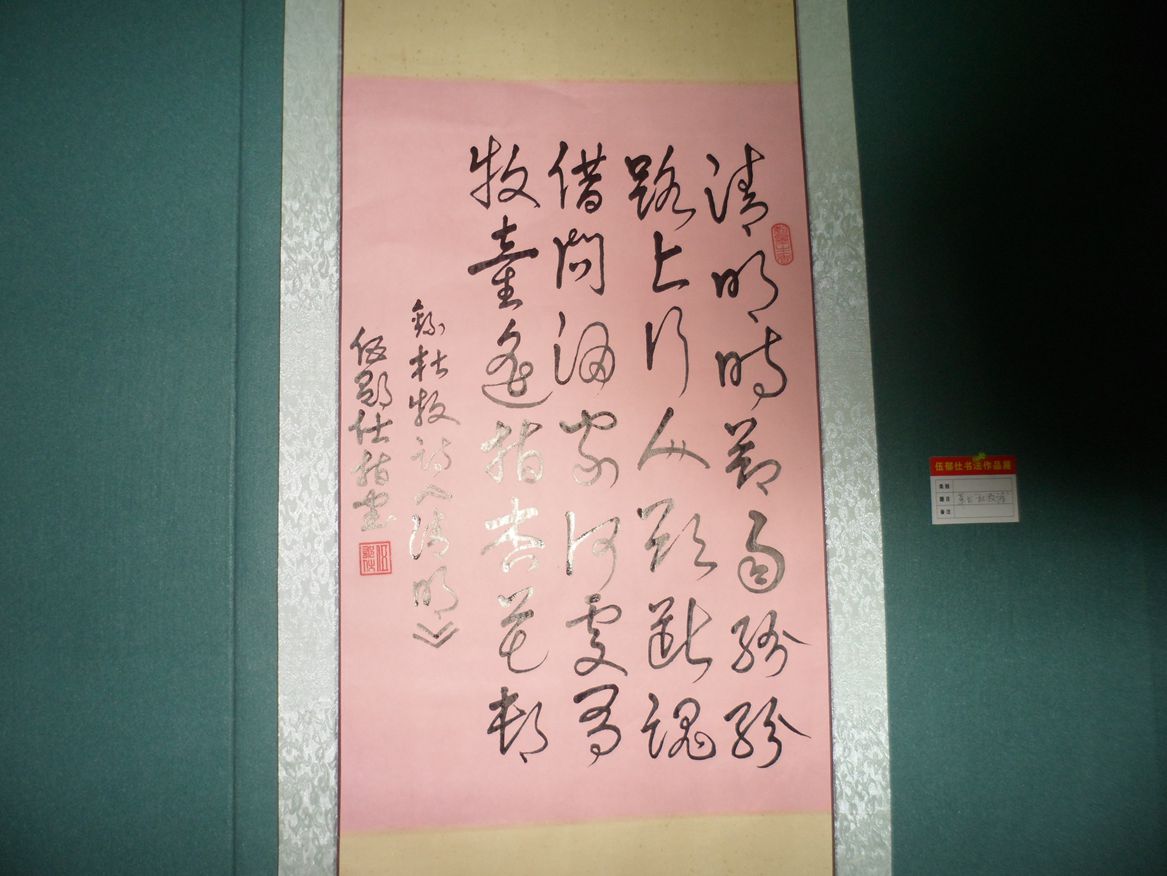 清明時節雨紛紛
路上行人欲斷魂
借問酒家何處有
牧童遙指杏花村
錄杜牧詩《清明》
伍郁仕指書
伍郁仕书法作品展
类别
题目 草书 杜牧诗
备注